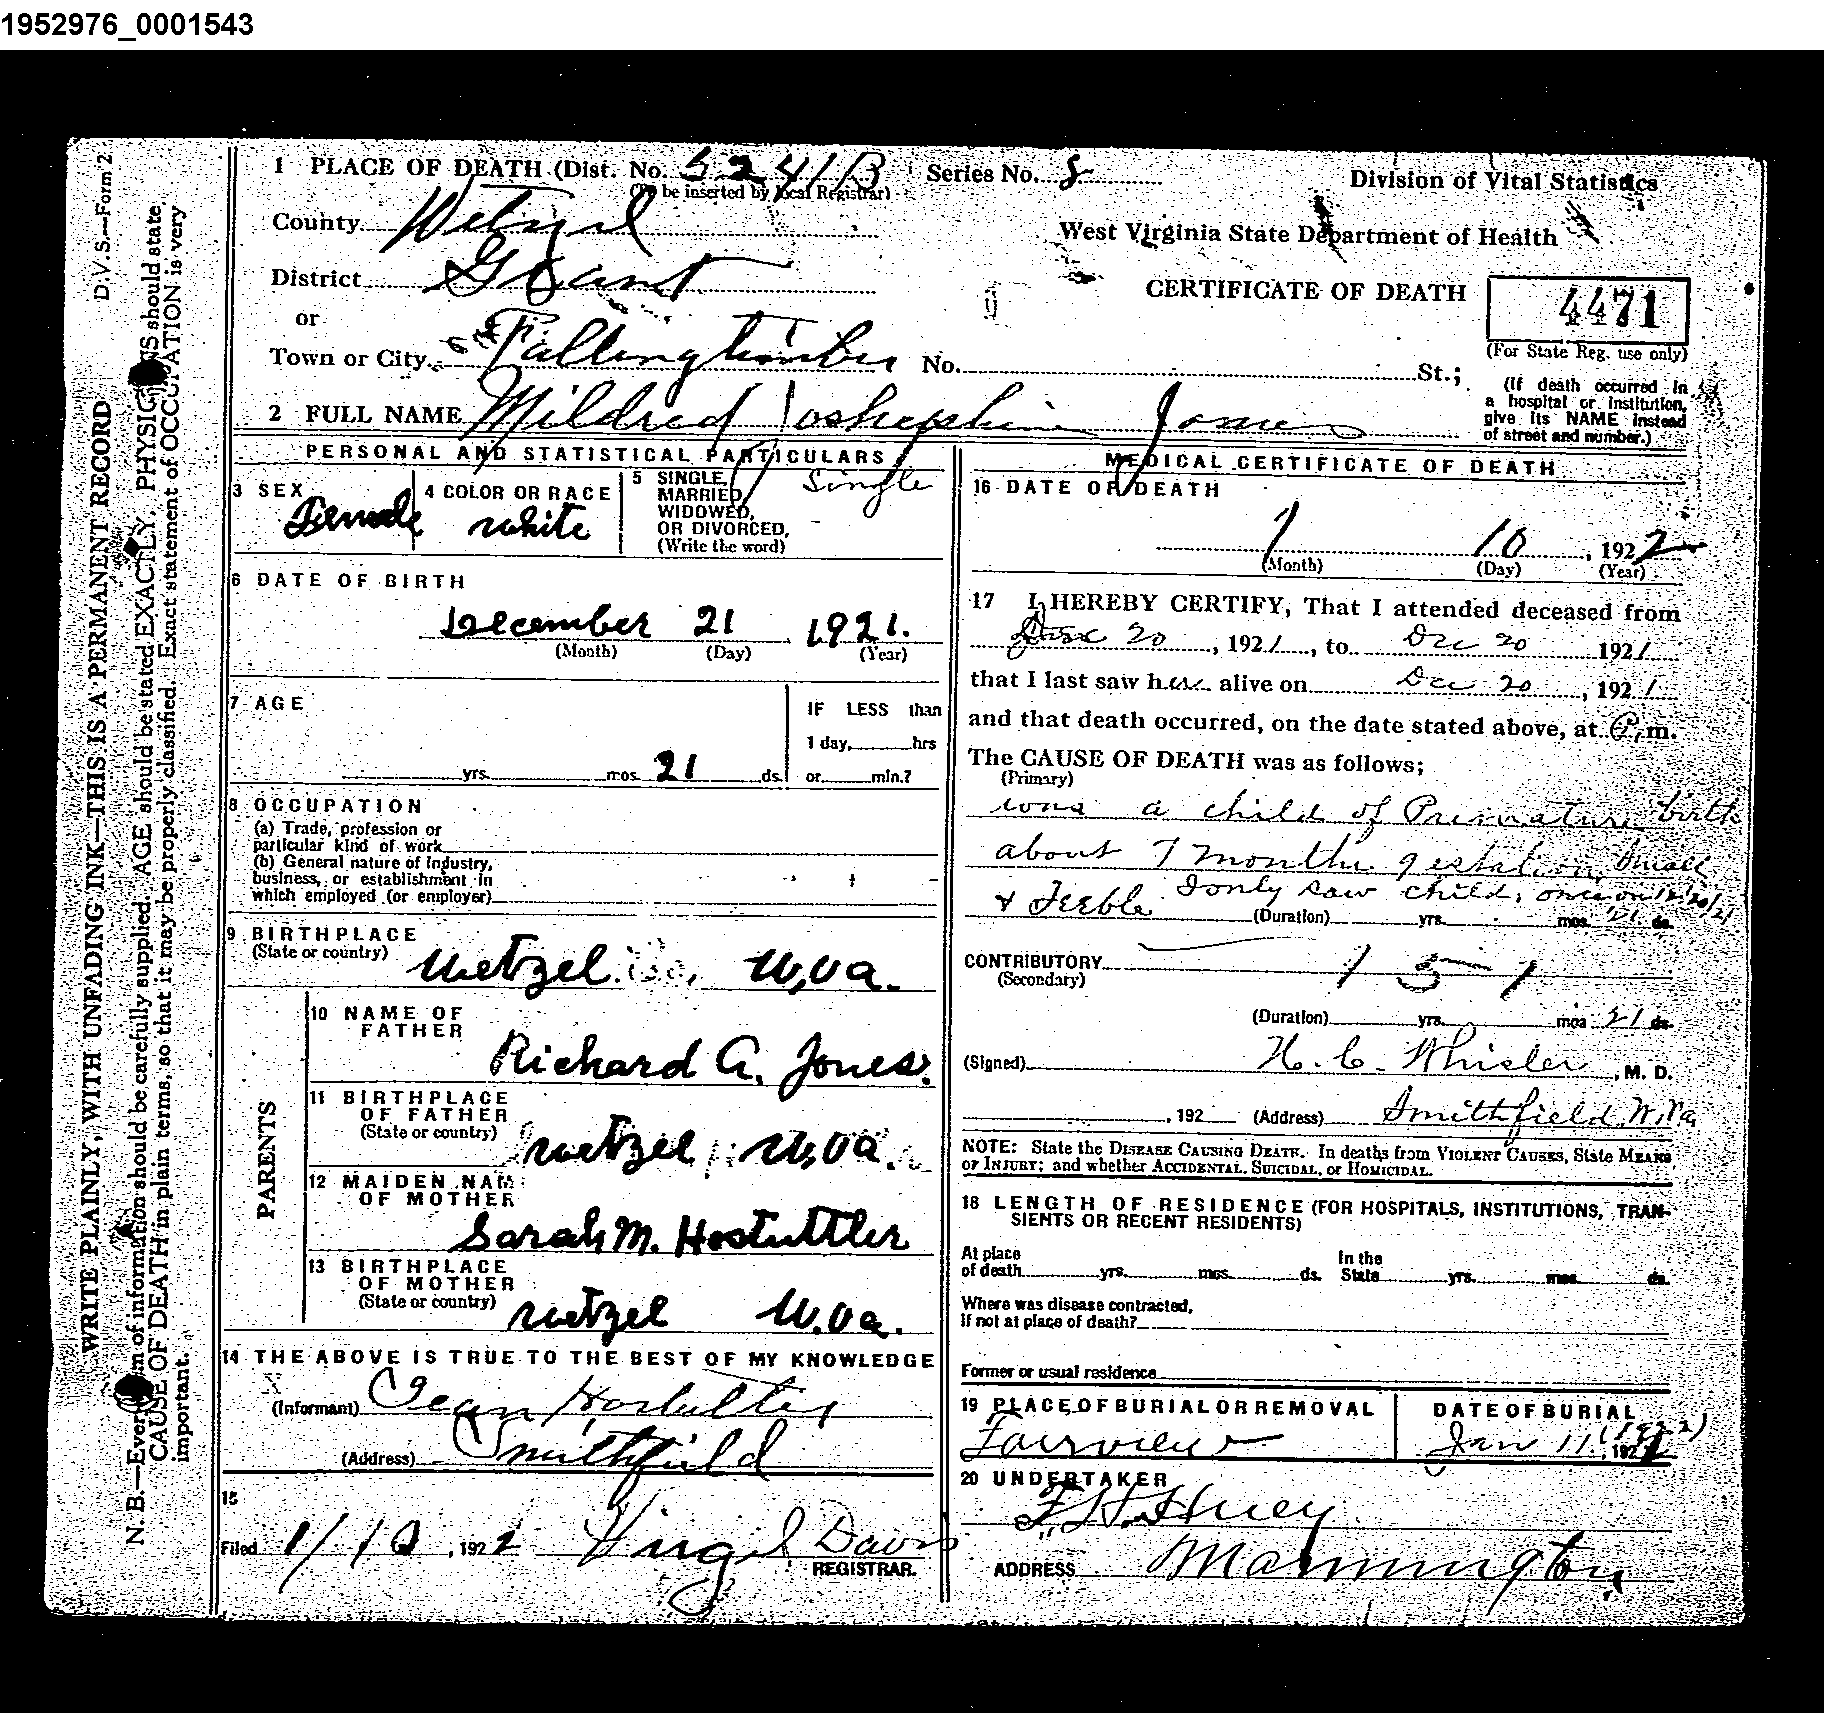 1952976_0001543
1 PLACE OF DEATH (Dist. No. 5241B Series No. 8
(To be inserted by local Registrar)
Division of Vital Statistics
County Wetzel
West Virginia State Department of Health
District Grant
CERTIFICATE OF DEATH
4471
(For State Reg. use only)
or
Town or City Fallingtimber No. St.;
(If death occurred in
a hospital or institution,
give its NAME instead
of street and number.)
2 FULL NAME Mildred Joshephine Jones
PERSONAL AND STATISTICAL PARTICULARS
3 SEX
Female
4 COLOR OR RACE
white
5 SINGLE,
MARRIED,
WIDOWED,
OR DIVORCED,
(Write the word)
Single
6 DATE OF BIRTH
December 21 1921.
(Month) (Day) (Year)
7 AGE
yrs. mos. 21 ds.
IF LESS than
1 day, hrs
or min.?
8 OCCUPATION
(a) Trade, profession or
particular kind of work
(b) General nature of Industry,
business, or establishment in
which employed (or employer)
9 BIRTHPLACE
(State or country)
Wetzel Co. W,Va.
PARENTS
10 NAME OF
FATHER
Richard A. Jones.
11 BIRTHPLACE
OF FATHER
(State or country)
Wetzel W,Va.
12 MAIDEN NAME
OF MOTHER
Sarah M. Hostuttler
13 BIRTHPLACE
OF MOTHER
(State or country)
Wetzel W.Va.
14 THE ABOVE IS TRUE TO THE BEST OF MY KNOWLEDGE
(Informant) Hostuttler
(Address) Smithfield
15
Filed 1/10, 1922 Virgil Davis
REGISTRAR.
MEDICAL CERTIFICATE OF DEATH
16 DATE OF DEATH
1 10, 1922
(Month) (Day) (Year)
17 I HEREBY CERTIFY, That I attended deceased from
Dec 20, 1921, to Dec 20 1921
that I last saw her alive on Dec 20, 1921
and that death occurred, on the date stated above, at P.m.
The CAUSE OF DEATH was as follows;
(Primary)
was a child of Premature birth
about 7 months gestation, small
& Feeble I only saw child, once on 12/20/21
(Duration) yrs. mos. 21 ds.
CONTRIBUTORY
(Secondary)
151
(Duration) yrs. mos. 21 ds.
(Signed) H. C. Whisler, M. D.
, 192 (Address) Smithfield W.Va
NOTE: State the DISEASE CAUSING DEATH. In deaths from VIOLENT CAUSES, State MEANS
OF INJURY; and whether ACCIDENTAL, SUICIDAL, or HOMICIDAL.
18 LENGTH OF RESIDENCE (FOR HOSPITALS, INSTITUTIONS, TRAN-
SIENTS OR RECENT RESIDENTS)
At place
of death yrs. mos. ds.
In the
State yrs. mos. ds.
Where was disease contracted,
If not at place of death?
Former or usual residence
19 PLACE OF BURIAL OR REMOVAL
Fairview
DATE OF BURIAL
Jan 11, 192 (1922)
20 UNDERTAKER
F. H. Huey
ADDRESS Mannington
D.V.S.—Form 2
WRITE PLAINLY, WITH UNFADING INK—THIS IS A PERMANENT RECORD
N. B.—Every item of information should be carefully supplied. AGE should be stated EXACTLY. PHYSICIANS should state
CAUSE OF DEATH in plain terms, so that it may be properly classified. Exact statement of OCCUPATION is very
important.